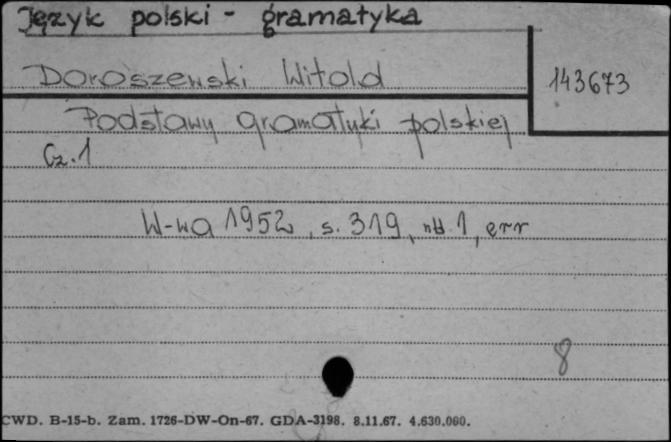 Język polski - gramatyka
Doroszewski Witold
143673
Podstawy gramatyki polskiej
Cz. 1
W-wa 1952, s. 319, nlb 1, err
8
CWD. B-15-b. Zam. 1726-DW-On-67. GDA-3198. 8.11.67. 4.630.000.